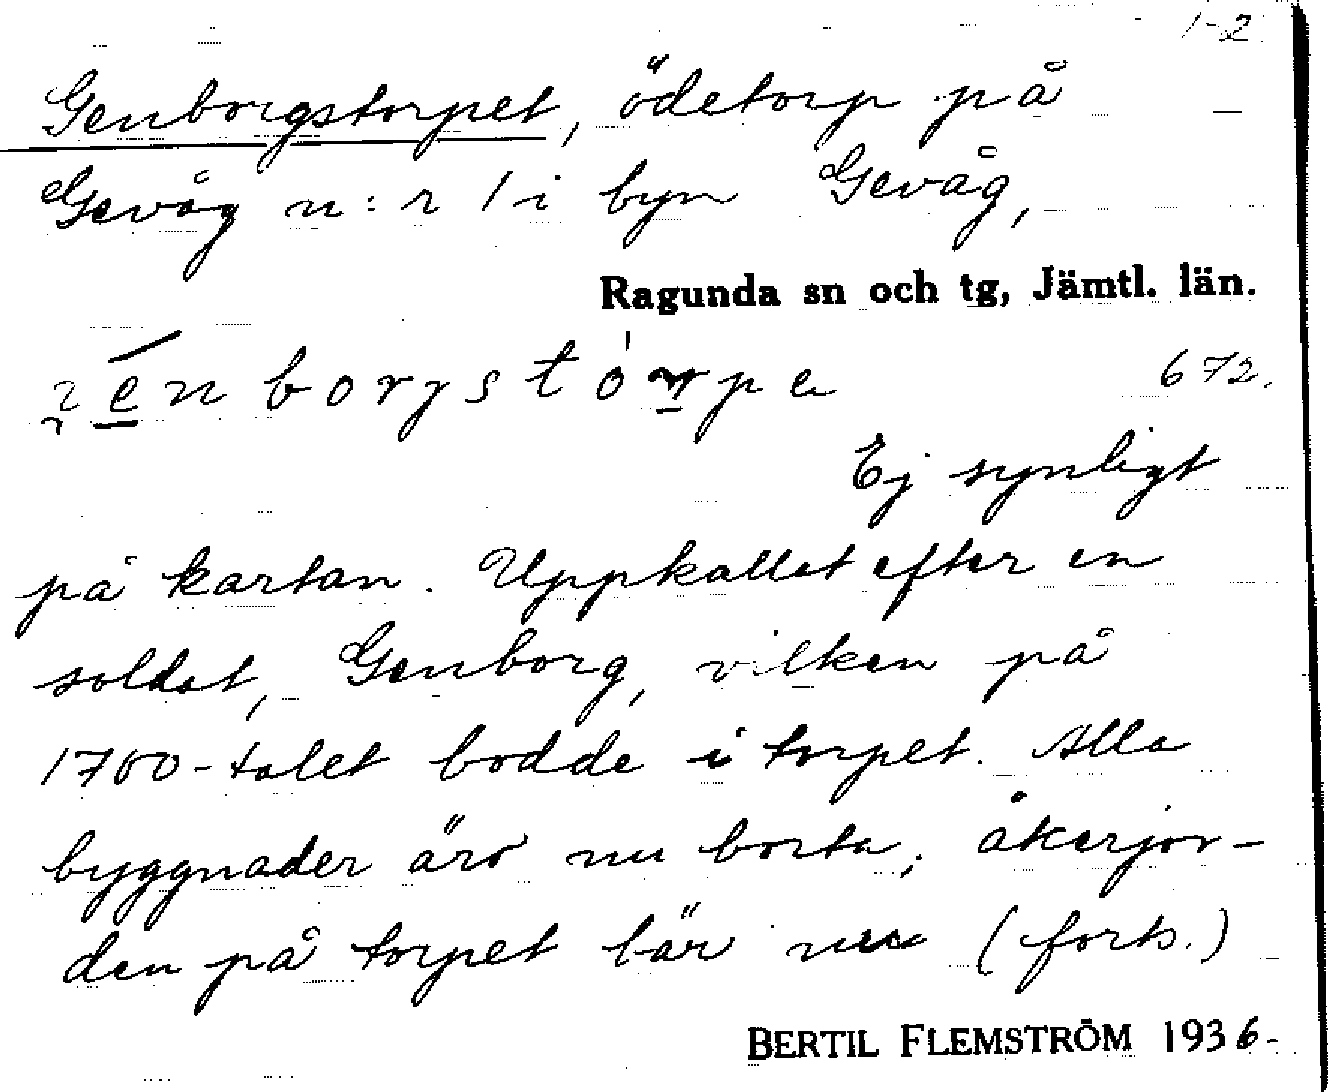 1-2
Genborgstorpet, ödetorp på
Gevåg n:r 1 i byn Gevåg,
Ragunda sn och tg, Jämtl. län.
672.
Ej synligt
på kartan. Uppkallat efter en
soldat, Genborg, vilken på
1700-talet bodde i torpet. Alla
byggnader äro nu borta; åkerjor-
den på torpet bär nu (forts.)
BERTIL FLEMSTRÖM 1936-